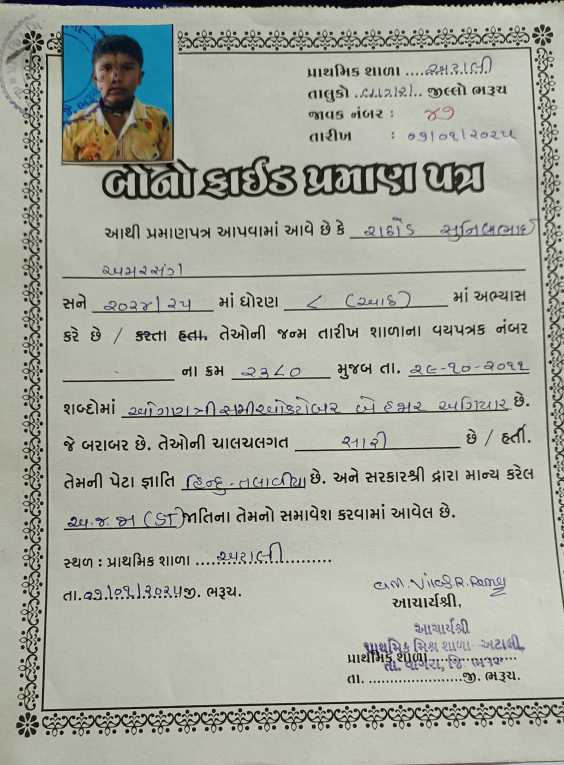 પ્રાથમિક શાળા ....અટાલી
તાલુકો ..વાગરા.. જીલ્લો ભરૂચ
જાવક નંબર : ૪૭
તારીખ : ૦૭/૦૧/૨૦૨૫
બોનો ફાઈડ પ્રમાણ પત્ર
આથી પ્રમાણપત્ર આપવામાં આવે છે કે રાઠોડ સુનિલભાઈ
અમરસંગ
સને ૨૦૨૪/૨૫ માં ધોરણ ૮ (આઠ) માં અભ્યાસ
કરે છે / કરતા હતા. તેઓની જન્મ તારીખ શાળાના વયપત્રક નંબર
ના ક્રમ ૨૩૮૦ મુજબ તા. ૨૯-૧૦-૨૦૧૧
શબ્દોમાં ઓગણત્રીસમી ઓક્ટોબર બે હજાર અગિયાર છે.
જે બરાબર છે. તેઓની ચાલચલગત સારી છે / હતી.
તેમની પેટા જ્ઞાતિ હિન્દુ-તલાવીયા છે. અને સરકારશ્રી દ્વારા માન્ય કરેલ
અ.જ.જા (ST) જાતિના તેમનો સમાવેશ કરવામાં આવેલ છે.
સ્થળ : પ્રાથમિક શાળા ....અટાલી...........
તા.૦૭/૦૧/૨૦૨૫જી. ભરૂચ.
આચાર્યશ્રી,
આચાર્યશ્રી
પ્રાથમિક મિશ્ર શાળા- અટાલી
પ્રાથમિક શાળા...................
તા. વાગરા, જિ. ભરૂચ
તા. .......................જી. ભરૂચ.